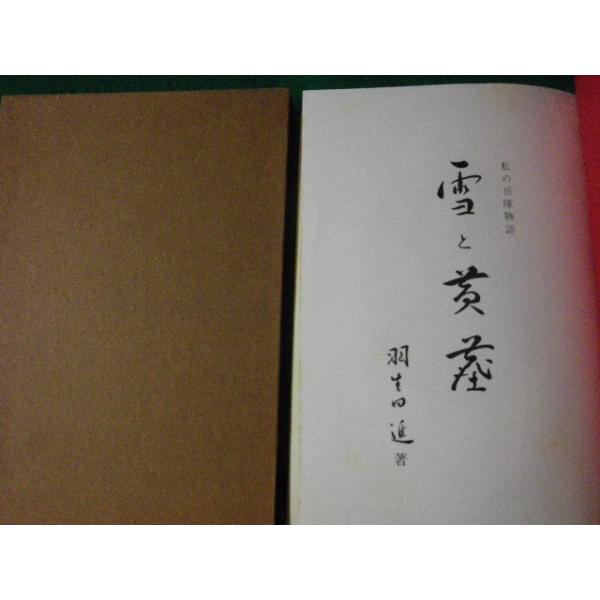 私の兵隊物語
雪と黄塵
羽生田進著